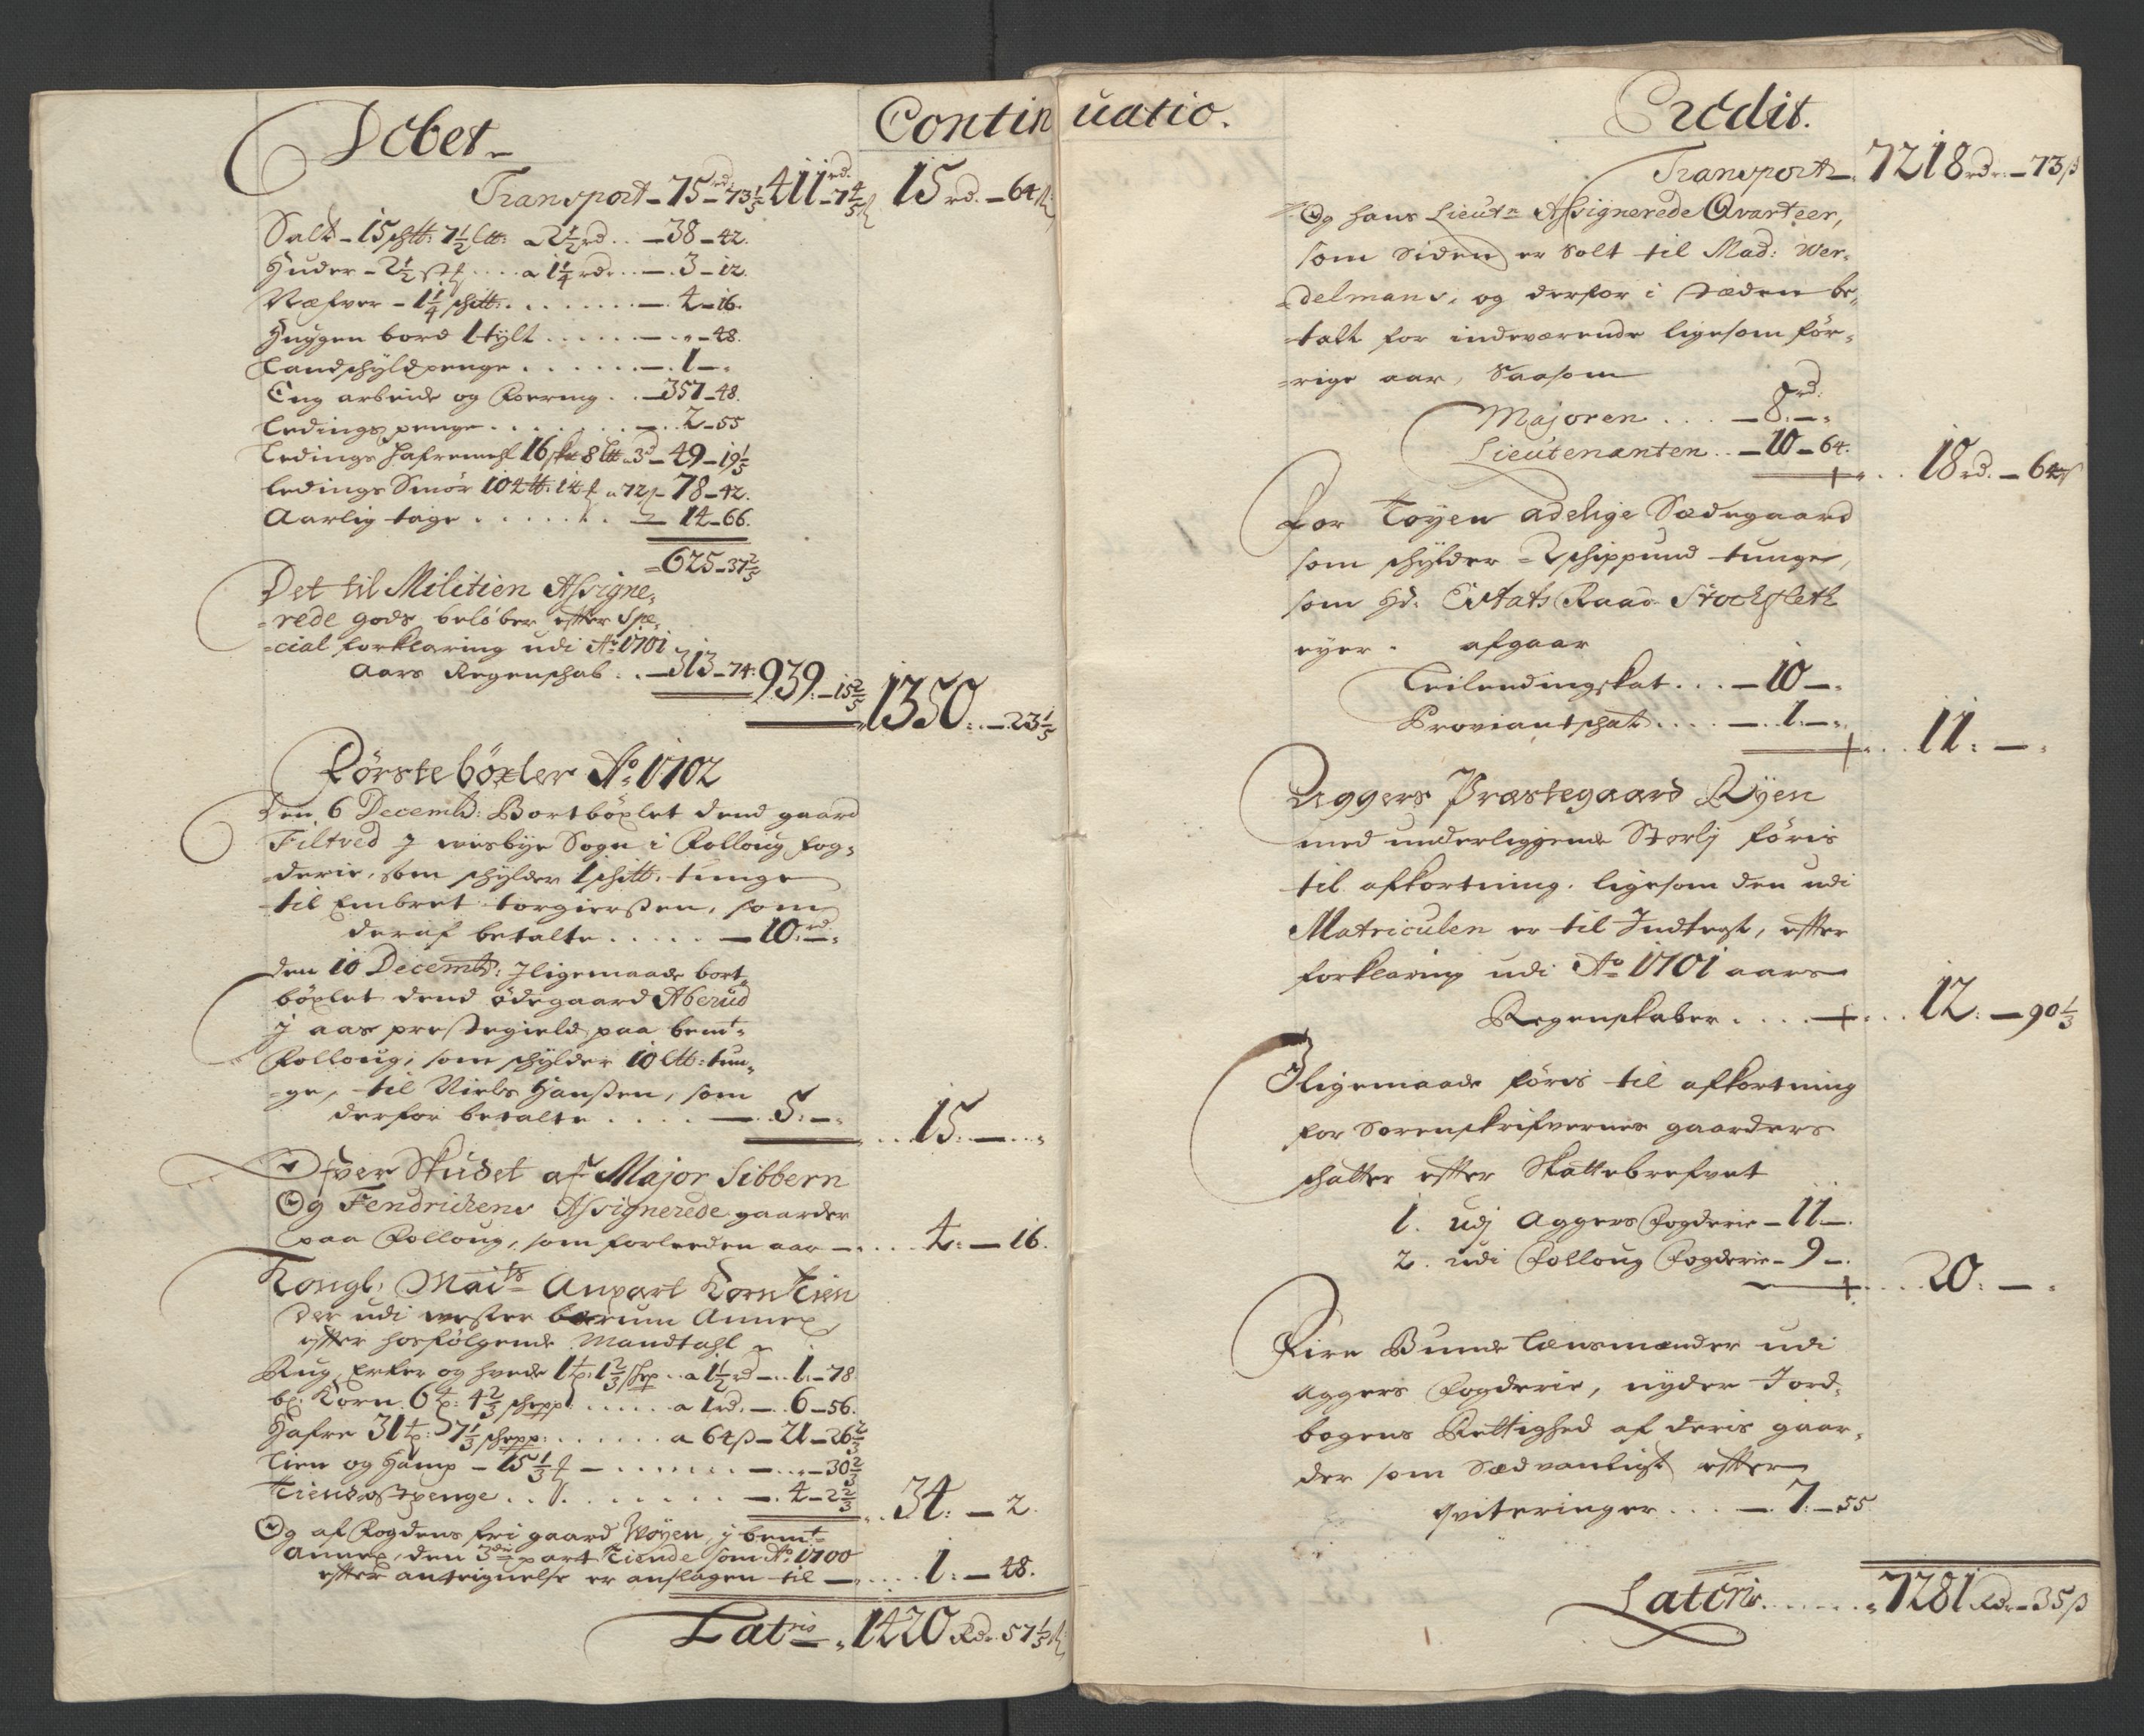 Debet
Continuatio.
Transport – 75 rd – 73 1/5 411 rd – 7 4/5 ß 15 rd. – 64 ß
Salt – 15 schtt: 7 1/2 ltt: a 2 1/2 rd . . – 38 – 42.
Huder – 2 1/2 st . . . . a 1 1/4 rdr . . – . 3 – 12.
Næfver – 1 1/4 schitt: . . . . . . . – . 4 – 16.
Huggen bord 1 tylt . . . . . . – . „ – 48.
Landschyldpenge . . . . . . – . 1 – „
Eng arbeide og Foering . . – 357 – 48.
Ledings penge . . . . . . . – . 2 – 55
Ledings Hafremehl 16 sk 8 ltt a 3 rd – 49 – 19 1/5
Ledings Smør 104 tt: 14 a 72 ß – 78 – 42.
Aarlig tage . . . . . . . – 14 – 66.
625 – 37 2/5
Det til Militien Assigne,
rede gods beløber effter Spe,
cial forklaring udi Ao 1701
Aars Regenschab . . – 313 – 74: 939: – 15 2/5 1350: – 23 1/5
Førstebøxler Ao 1702
Den 6 Decembr: Bortbøxlet dend gaard
Filtved J wesbye Sogn i Folloug fog,
derie, som schylder 1 schitt: tunge
til Embret torgiersen, som
deraf betalte . . . . . – 10 rd: – „
Den 10 Decembr: Jligemaade bort,
bøxlet dend ødegaard Aberud
J aas prestegield paa bemt:
Folloug, som schylder 10 ltt: tun,
ge, til Niels Hansen, som
derfor betalte . . . . – . 5: – „ . . . 15: – . . „
Ofver Skudet af Major Sibbern
Og Fendrichens Assignerede gaarder
paa Folloug, som forleeden aar – . . . . 4: – 16.
Kongl: Maits Anpart Korn Tien
der udi wester bærum Annex
effter hosfølgende Mandtahl
Rug, Erter og hvede 1 t: 1 2/3 schep . . a 1 1/2 rd – . 1: – 78
bl: Korn 6 t: 4 2/3 schepp: . . . . . a 1 rd. – . 6 – 56.
Hafre 31 t: 7 1/3 schepp: . . . . . . a 64 ß – 21 – 26 2/3
Lien og Hamp – 15 1/3 – . . . . . . – . „ – 30 2/3
Tiendostpenge . . . . . . . . . – . 4 – 2 2/3 . . 34: – 2.
Og af Fogdens fri gaard Wøyen j bemt:
Annex, den 3die part Tiende som Ao 1700
effter antegnelse er anslagen til – . . . . 1: – 48.
Latris „ 1420 Rdr 57 1/5 ß
Credit.
Transport – . 7218 rdr: – 73 ß
Og hans Lieutn Assignerede Qvarteer,
som siden er solt til Mad: Wer,
delmans, og derfor i stæden be,
talt for indeværende ligesom før,
rige aar, Saasom
Majoren . . . – 8 rd: – „
Lieutenanten . . – 10 – 64. . . 18 rd. – 64 ß
For Tøyen adelige Sædegaard
som schylder – 2 schippund tunge,
som Hd: Etats Raad Stochfleth
eyer . afgaar
Leilendingskat . . . – 10 – „
Proviantschat . . . . – . 1. – „ . . . 11: – „
Aggers Præstegaard Ryen
med underliggende Størlj føris
til afkortning. ligesom den udi
Matriculen er til Indtegt, effter
forklaring udi Ao 1701 aars
Regenskaber . . . . – . . . 12: – 90 1/3
Jligemaade føris til afkortning
for Sorenskrifvernes gaarders
schatter effter Skattebrefvet
1. udj Aggers Fogderie – 11 – .
2. udi Folloug Fogderie – 9 – . . . . . 20: – „
Fire Bunde Lænsmænder udi
Aggers Fogderie, nyder Jord,
bogens Rettighed af deris gaar,
der som Sædvanligt effter
qviteringer . . . – . 7: – 55
Lateris . . . . . . „ 7281 Rdr – 35 ß